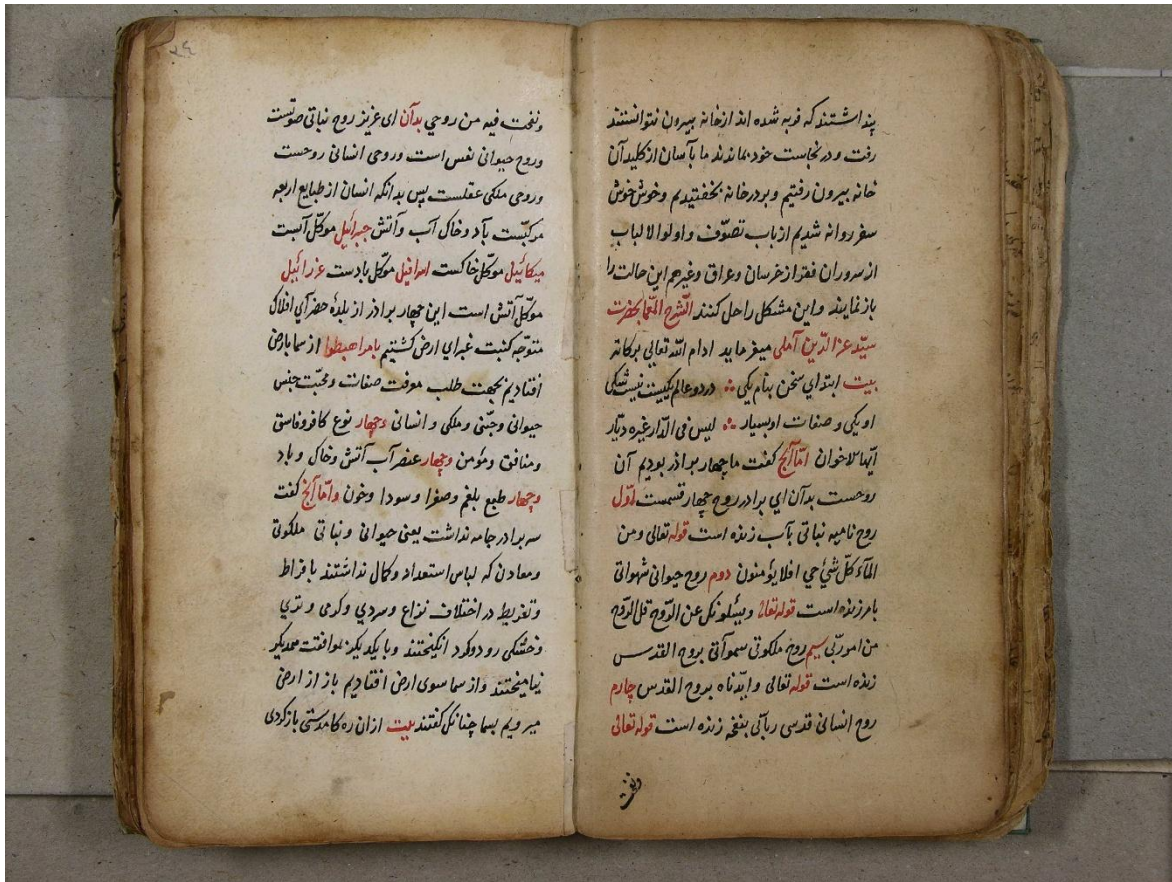 پنداشتند که فربه شده اند از خانه بیرون نتوانستند
رفت و در نجاست خود بماندند ما بآسان از کلیدآن
خانه بیرون رفتیم و بر در خانه بخفتیدیم و خوش خوش
سفر روانه شدیم از باب تصوّف و اولوا الالباب
از سروران فقرا از خرسان و عراق و غیرهم این حالت را
باز نمایند و این مشکل را حل کنند الشرح المعمّا بحضرت
سیّد عزّ الدّین آملی میفرماید ادام الله تعالی برکاته
بیت ابتدای سخن بنام یکی در دو عالم یکیست نیست شکی
او یکی و صفات او بسیار لیس فی الدّار غیره دیّار
ایّها الاخوان امّا آنچ گفت ما چهار برادر بودیم آن
روحست بدآن ای برادر روح چهار قسمست اوّل
روح نامیه نباتی بآب زنده است قوله تعالی ومن
المآء کلّ شیٔ حی افلا یؤمنون دوم روح حیوانی شهوانی
بامر زنده است قوله تعالی ویسئلونک عن الرّوح قل الرّوح
من امر ربّی سیم روح ملکوتی سموآتی بروح القدس
زنده است قوله تعالی وایّدناه بروح القدس چهارم
روح انسانی قدسی ربّانی بنفخه زنده است قوله تعالی
ونفخت
۲۴
ونفخت فیه من روحی بدآن ای عزیز روح نباتی صوتست
وروح حیوانی نفس است وروحی انسانی روحست
وروحی ملکی عقلست پس بدانکه انسان از طبایع اربعه
مرکبّست بآد وخاک آب وآتش جبرائیل موکّل آبست
میکائیل موکّل خاکست اسرافیل موکّل بادست عزرائیل
موکّل آتش است این چهار برادر از بلدهٔ حضرآی افلاک
متوجّه کنبت غبرای ارض کشتیم بامر اهبطوا از سما بارض
افتادیم بجهت طلب معرفت صفات ومحبّت جنس
حیوانی وجنّی وملکی وانسانی وچهار نوع کافر وفاسق
ومنافق ومؤمن وچهار عنصر آب آتش وخاک وباد
وچهار طبع بلغم وصفرا وسودا وخون وامّا آنچ گفت
سه برادر جامه نداشت یعنی حیوانی ونباتی ملکوتی
ومعادن که لباس استعداد وکمال نداشتند بافراط
وتفریط در اختلاف نزاع وسردی وکرمی وتری
وخشکی رو دوکرد انکیختند وبا یکدیکر موافقت همدیکر
نیامیختند واز سما سوی ارض افتادیم باز از ارض
میرویم بسما چنانک گفتند بیت ازان ره کامدستی بازکردی